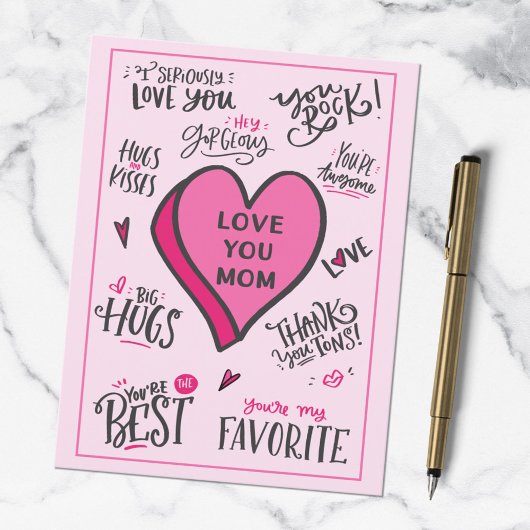 I SERIOUSLY
LOVE YOU
You
ROCK!
HEY
GORGEOUS
HUGS
AND
KISSES
You're
Awesome
LOVE
YOU
MOM
LOVE
BIG
HUGS
THANK
You TONS!
YOU'RE THE
BEST
you're my
FAVORITE